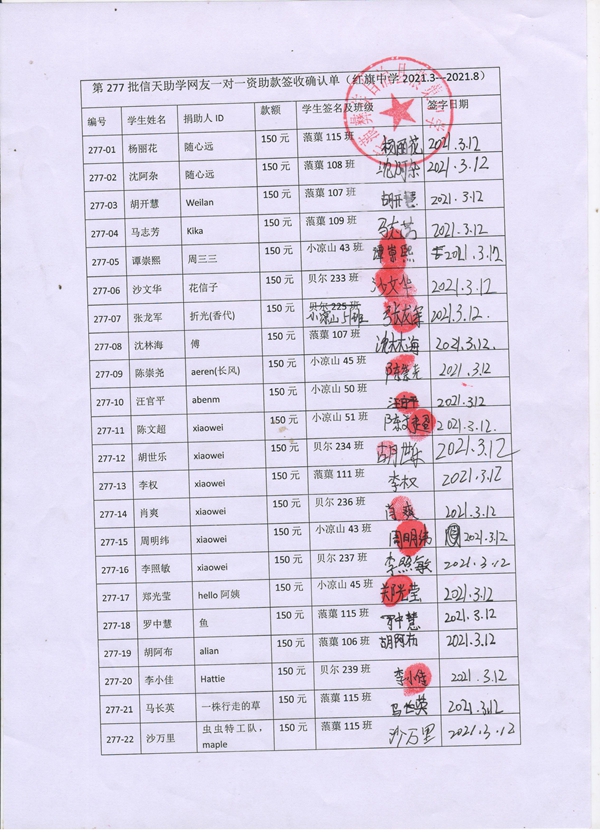 第 277 批信天助学网友一对一资助款签收确认单（红旗中学 2021.3---2021.8）
编号 学生姓名 捐助人 ID 款额 学生签名及班级 签字日期
277-01 杨丽花 随心远 150 元 蕅蕖 115 班 杨丽花 2021.3.12
277-02 沈阿杂 随心远 150 元 蕅蕖 108 班 沈阿杂 2021.3.12
277-03 胡开慧 Weilan 150 元 蕅蕖 107 班 胡开慧 2021.3.12
277-04 马志芳 Kika 150 元 蕅蕖 109 班 2021.3.12
277-05 谭崇熙 周三三 150 元 小凉山 43 班 谭崇熙 2021.3.12
277-06 沙文华 花信子 150 元 贝尔 233 班 沙文华 2021.3.12
277-07 张龙军 折光(香代) 150 元 贝尔 225 班 小凉山51班 张龙军 2021.3.12.
277-08 沈林海 傅 150 元 蕅蕖 107 班 沈林海 2021.3.12.
277-09 陈崇尧 aeren(长风) 150 元 小凉山 45 班 陈崇尧 2021.3.12
277-10 汪官平 abenm 150 元 小凉山 50 班 汪官平 2021.3.12
277-11 陈文超 xiaowei 150 元 小凉山 51 班 陈文超 2021.3.12.
277-12 胡世乐 xiaowei 150 元 贝尔 234 班 胡世乐 2021.3.12
277-13 李权 xiaowei 150 元 蕅蕖 111 班 李权 2021.3.12
277-14 肖爽 xiaowei 150 元 贝尔 236 班 肖爽 2021.3.12
277-15 周明纬 xiaowei 150 元 小凉山 43 班 周明纬 2021.3.12
277-16 李照敏 xiaowei 150 元 贝尔 237 班 李照敏 2021.3.12
277-17 郑光莹 hello 阿姨 150 元 小凉山 45 班 郑光莹 2021.3.12
277-18 罗中慧 鱼 150 元 蕅蕖 115 班 罗中慧 2021.3.12
277-19 胡阿布 alian 150 元 蕅蕖 106 班 胡阿布 2021.3.12
277-20 李小佳 Hattie 150 元 贝尔 239 班 李小佳 2021.3.12
277-21 马长英 一株行走的草 150 元 蕅蕖 115 班 马长英 2021.3.12
277-22 沙万里 虫虫特工队， 150 元 蕅蕖 115 班 沙万里 2021.3.12
maple